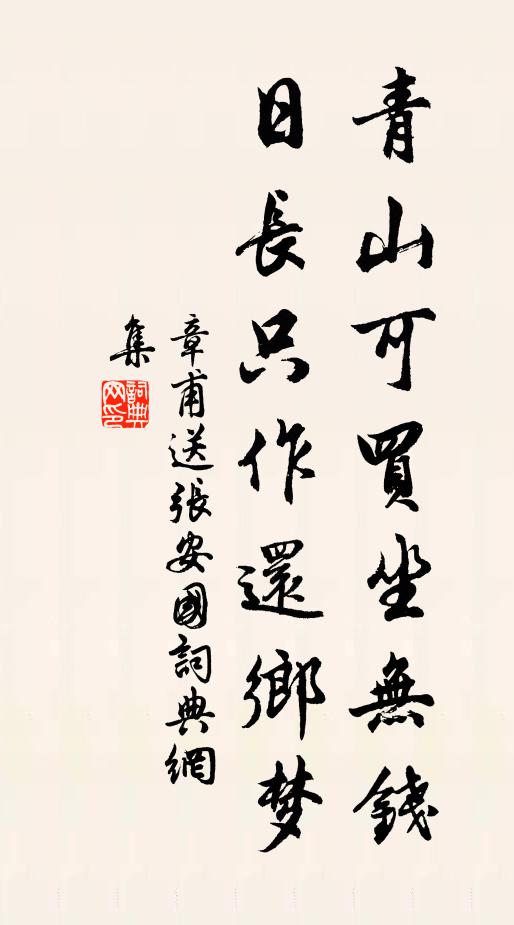 青山可買坐無錢
日長只作還鄉梦
章甫送張安國詞典網
集
詞典網印